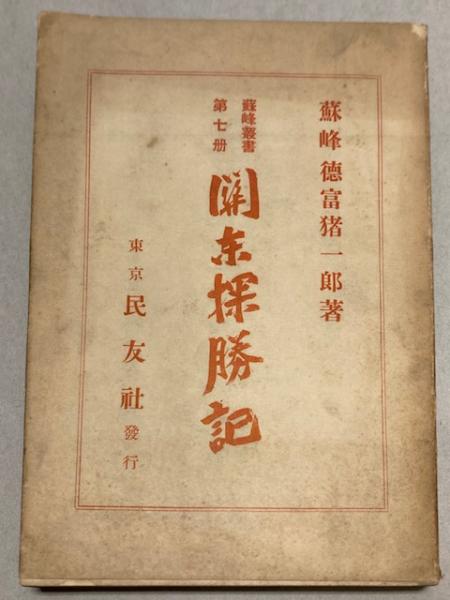 蘇峰 德富猪一郎著
蘇峰叢書
第七册
關東探勝記
東京 民友社 發行